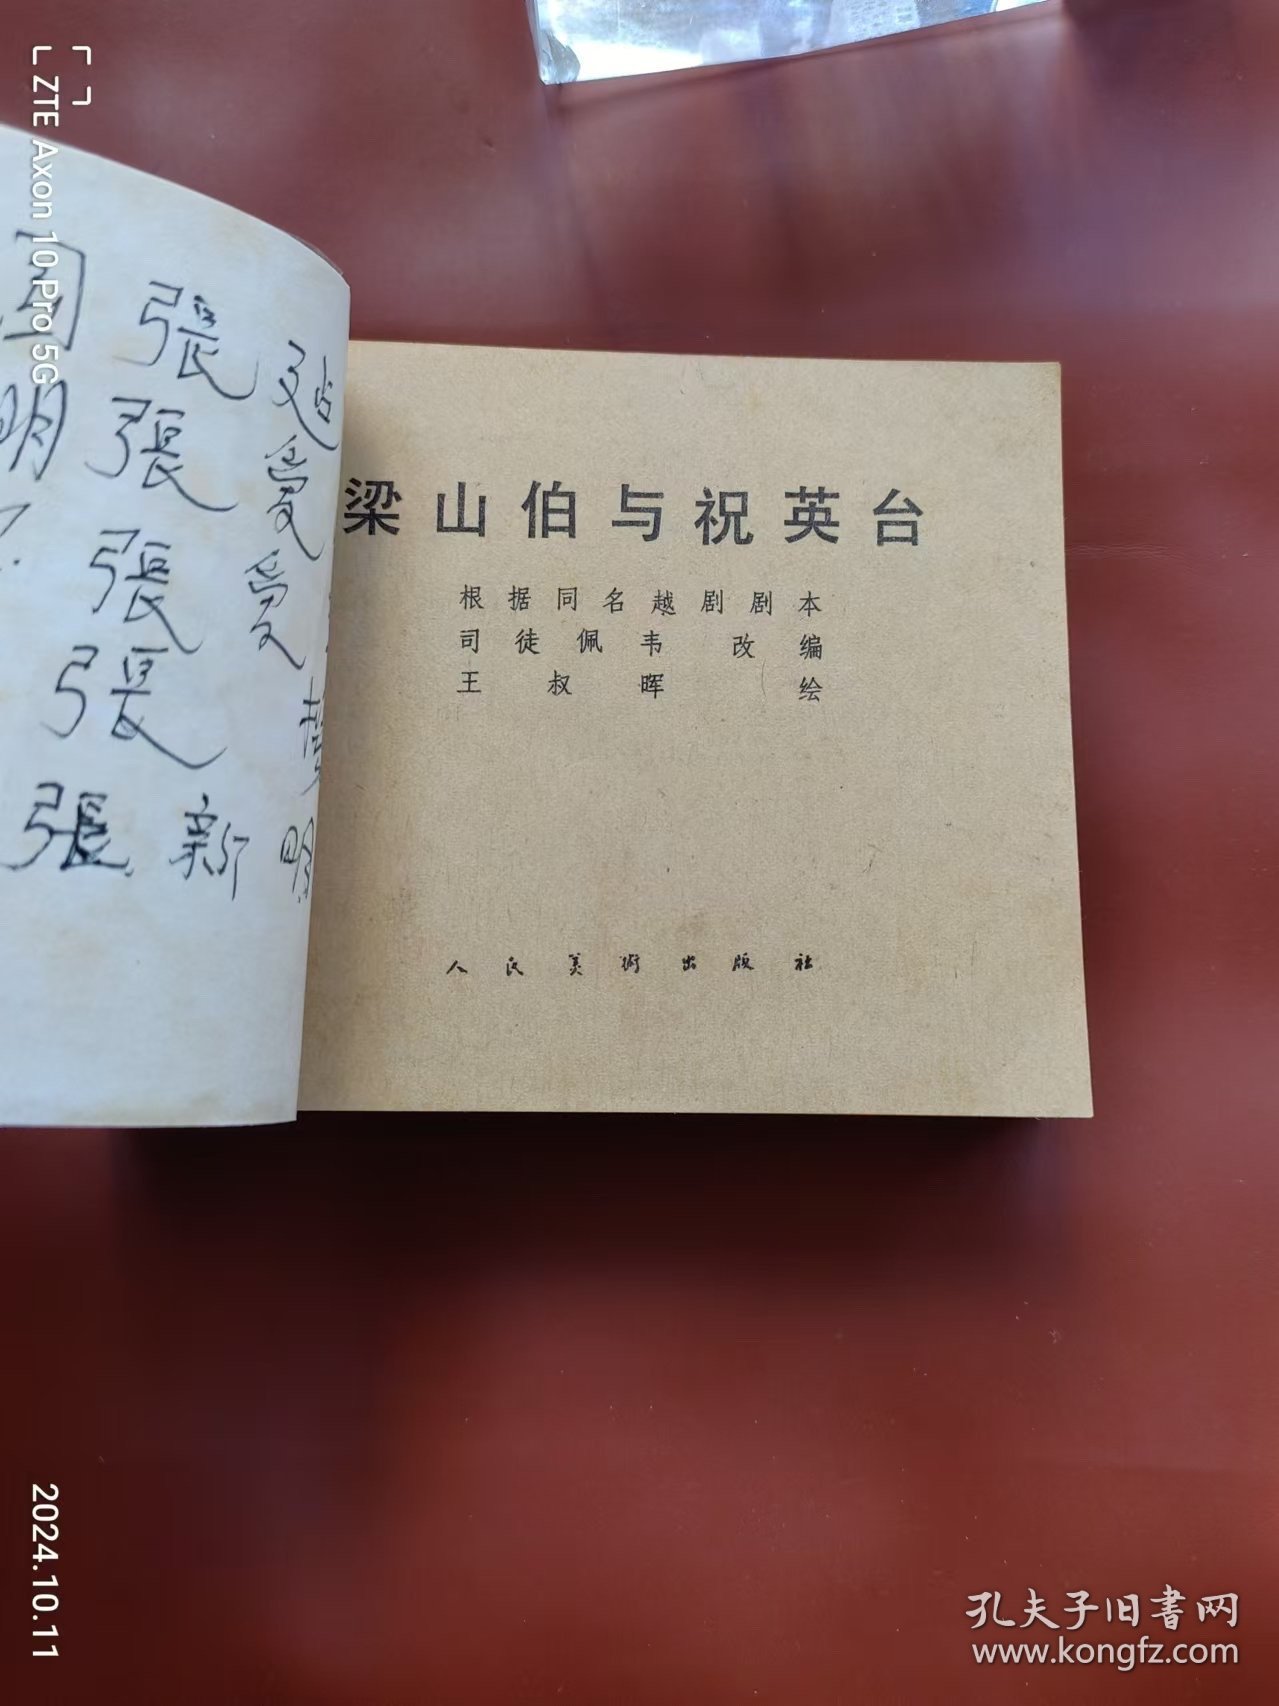 ZTE Axon 10 Pro 5G
国 張
明 張 爱
張 爱
張
張 新 明
梁山伯与祝英台
根据同名越剧剧本
司徒佩韦 改编
王叔晖 绘
人民美術出版社
2024.10.11
孔夫子旧書网
www.kongfz.com